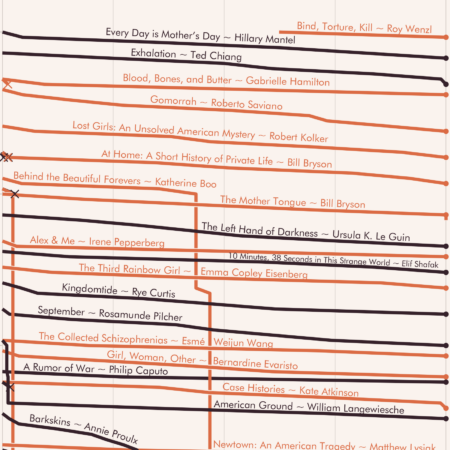 Bind, Torture, Kill ~ Roy Wenzl
Every Day is Mother's Day ~ Hillary Mantel
Exhalation ~ Ted Chiang
Blood, Bones, and Butter ~ Gabrielle Hamilton
Gomorrah ~ Roberto Saviano
Lost Girls: An Unsolved American Mystery ~ Robert Kolker
At Home: A Short History of Private Life ~ Bill Bryson
Behind the Beautiful Forevers ~ Katherine Boo
The Mother Tongue ~ Bill Bryson
The Left Hand of Darkness ~ Ursula K. Le Guin
Alex & Me ~ Irene Pepperberg
10 Minutes, 38 Seconds in This Strange World ~ Elif Shafak
The Third Rainbow Girl ~ Emma Copley Eisenberg
Kingdomtide ~ Rye Curtis
September ~ Rosamunde Pilcher
The Collected Schizophrenias ~ Esmé Weijun Wang
Girl, Woman, Other ~ Bernardine Evaristo
A Rumor of War ~ Philip Caputo
Case Histories ~ Kate Atkinson
American Ground ~ William Langewiesche
Barkskins ~ Annie Proulx
Newtown: An American Tragedy ~ Matthew Lysiak